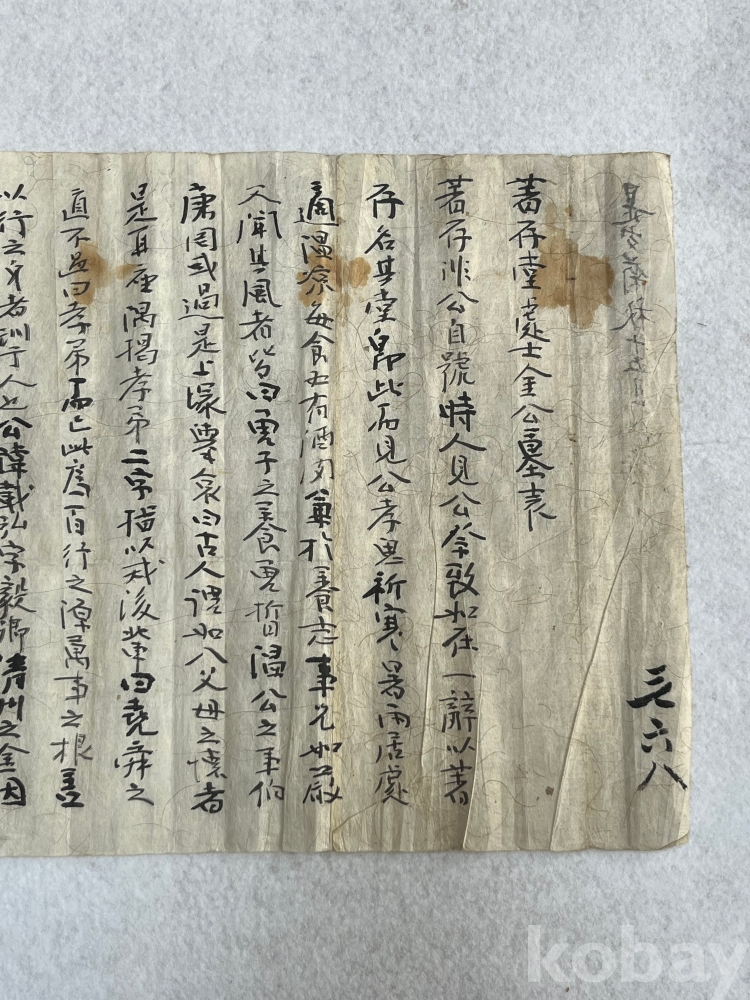 菊秋十五日
三六八
著存堂處士金公墓表
著存非公自號時人見公祭致如在一辭以著
存名其堂即此而見公孝思祈寒暑雨居處
適溫凉每食必有酒肉兼於養志事兄如嚴
人聞其風者皆曰曾子之養曾晳溫公之事伯
康固或過是上塚輿哀曰古人謂如入父母之懷者
是耳座隅揭孝弟二字揩以戒後輩曰堯舜之
道不過曰孝弟而已此爲百行之源萬事之根善
以行之身者訓于人也公諱載弘字毅卿清州之金因
kobay